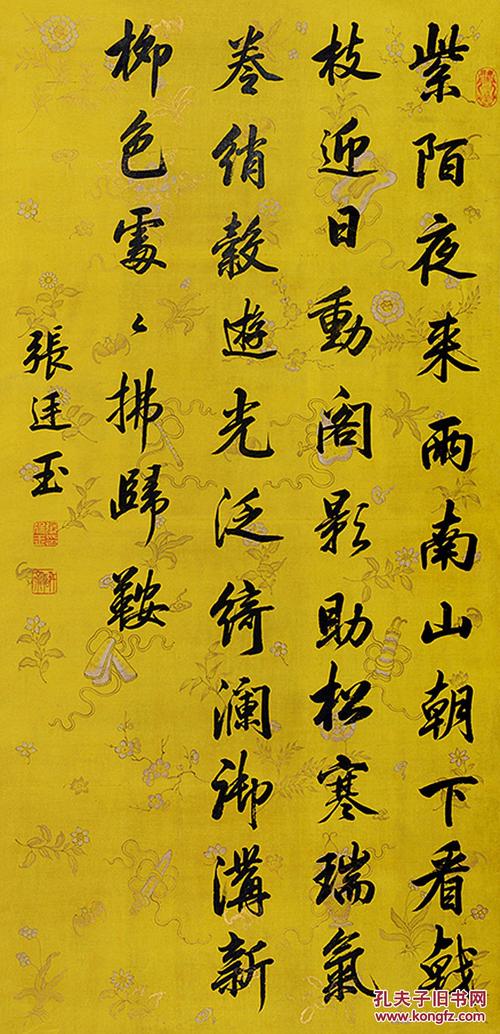 紫陌夜来雨南山朝下看戟
枝迎日動阁影助松寒瑞氣
卷綃縠遊光泛綺瀾御溝新
柳色處〻拂歸鞍
張廷玉
孔夫子旧书网
www.kongfz.com